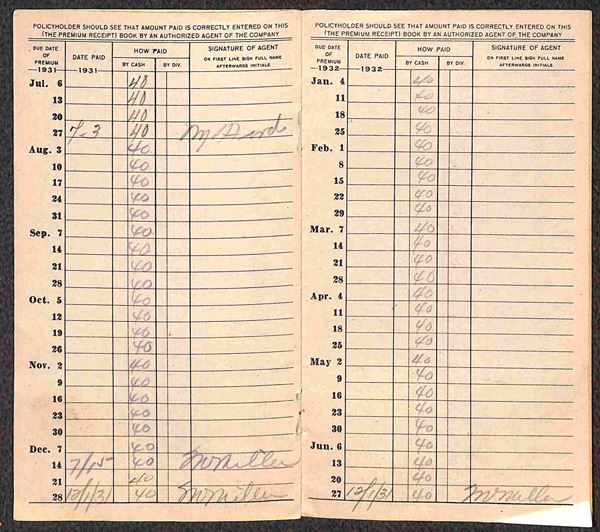 POLICYHOLDER SHOULD SEE THAT AMOUNT PAID IS CORRECTLY ENTERED ON THIS
(THE PREMIUM RECEIPT) BOOK BY AN AUTHORIZED AGENT OF THE COMPANY
DUE DATE OF PREMIUM —1931— DATE PAID —1931— HOW PAID BY CASH BY DIV. SIGNATURE OF AGENT ON FIRST LINE SIGN FULL NAME AFTERWARDS INITIALS
Jul. 6 40
13 40
20 40
27 7-3 40
Aug. 3 40
10 40
17 40
24 40
31 40
Sep. 7 40
14 40
21 40
28 40
Oct. 5 40
12 40
19 40
26 40
Nov. 2 40
9 40
16 40
23 40
30 40
Dec. 7 40
14 7/15 40 Miller
21 40
28 12/1/31 40 Miller
POLICYHOLDER SHOULD SEE THAT AMOUNT PAID IS CORRECTLY ENTERED ON THIS
(THE PREMIUM RECEIPT) BOOK BY AN AUTHORIZED AGENT OF THE COMPANY
DUE DATE OF PREMIUM —1932— DATE PAID —1932— HOW PAID BY CASH BY DIV. SIGNATURE OF AGENT ON FIRST LINE SIGN FULL NAME AFTERWARDS INITIALS
Jan. 4 40
11 40
18 40
25 40
Feb. 1 40
8 40
15 40
22 40
29 40
Mar. 7 40
14 40
21 40
28 40
Apr. 4 40
11 40
18 40
25 40
May 2 40
9 40
16 40
23 40
30 40
Jun. 6 40
13 40
20 40
27 12/1/31 40 Miller